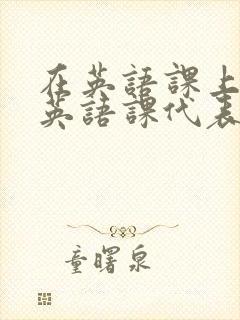 在英語課上
英語課代表
童曙泉